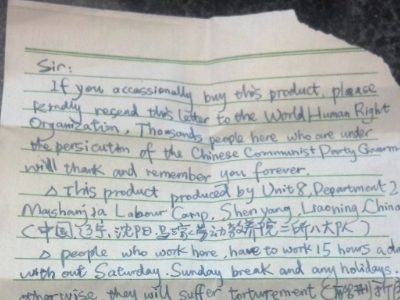 Sir:
If you occassionally buy this product, please
kindly resend this letter to the World Human Right
Organization. Thousands people here who are under
the persicution of the Chinese Communist Party Goverm
will thank and remember you forever.
△ This product produced by Unit 8, Department 2
Mashanjia Labour Camp, Shenyang, Liaoning, China
(中国,辽宁,沈阳,马三家劳动教养院二所八大队)
△ people who work here, have to work 15 hours a da
with out Saturday. Sunday break and any holidays.
otherwise, they will suffer torturement